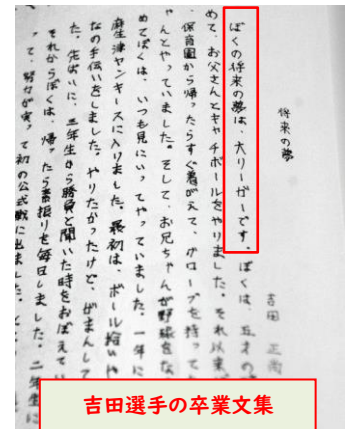 将来の夢
吉田 正尚
ぼくの将来の夢は、大リーガーです。ぼくは、五才の
めて、お父さんとキャチボールをやりました。それ以来
、保育園から帰ったらすぐ着がえて、グローブを持って
ゃんとやっていました。そして、お兄ちゃんが野球をな
めてぼくは、いつも見にいってやっていました。一年に
麻生津ヤンキースに入りました。最初は、ボール拾いや
なの手伝いをしました。やりたかったけど、がまんして
た。先ぱいに、三年生から勝負と聞いた時をおぼえてい
それからぼくは、帰ったら素振りを毎日しました。二年生に
って、努力が実って初の公式戦に出ました。
吉田選手の卒業文集